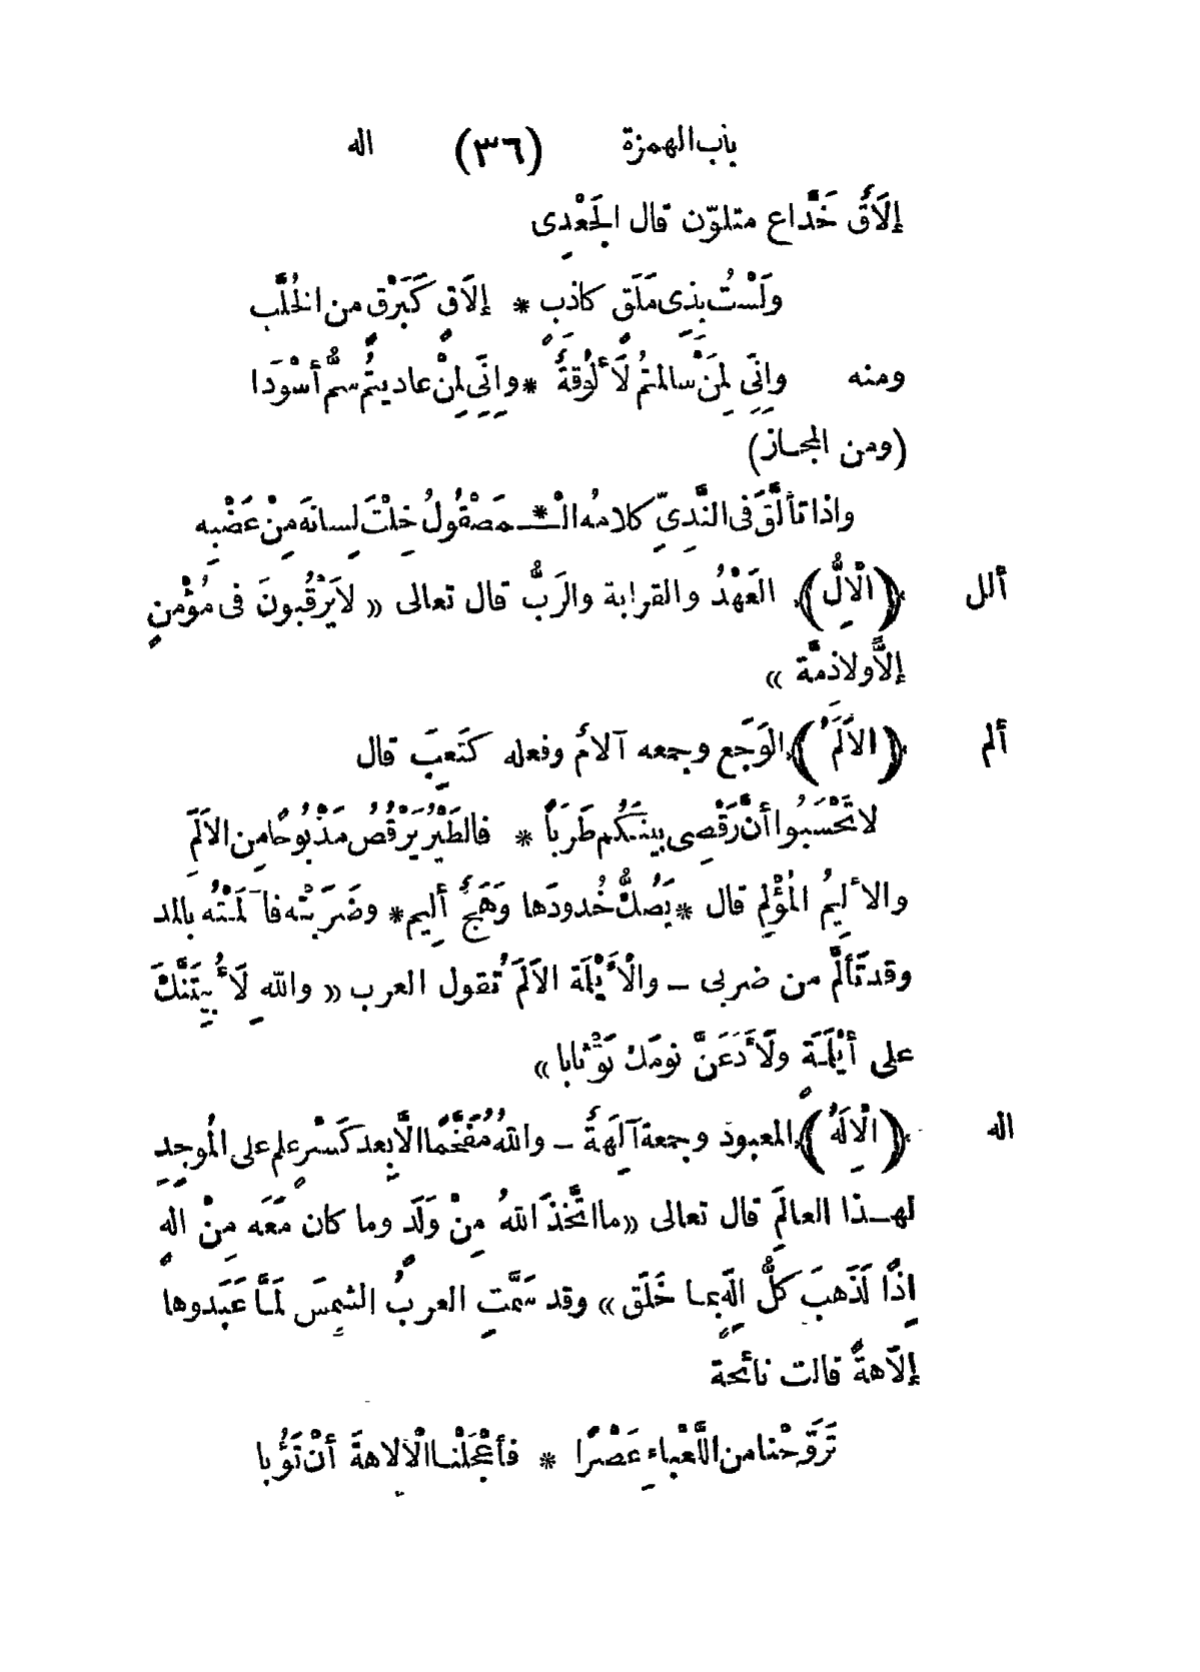 باب الهمزة (٣٦) اله
إلَاقٌ خَدَّاع متلوّن قال الجَعْدِى
ولَسْتُ بِذِى مَلَقٍ كاذبٍ * إلَاقٍ كَبَرْقٍ من الخُلَّب
ومنه وإنِّى لِمَنْ سالمتمُ لَأَلُوقةٌ * وإنِّى لِمنْ عاديتمُ سمُّ أسْوَدا
(ومن المجاز)
واذا تألَّقَ فى النَّدِىِّ كلامُه الْـ * ـمَصْقُولُ خِلْتَ لِسانَه مِنْ عَضْبِه
ألل ﴿الْاِلُّ﴾ العَهْدُ والقرابة والرَبُّ قال تعالى « لَايَرْقُبونَ فى مُؤْمنٍ
إلاًّ ولاذمَّة »
ألم ﴿الاَلَمُ﴾ الوَجَع وجمعه آلامٌ وفعله كتَعِبَ قال
لاتَحْسَبُوا أنَّ رَقْصِى بينَكُم طَرَباً * فالطَيْرُ يَرْقُصُ مَذْبُوحًا مِن الاَلَمِ
والأليمُ المُؤْلِم قال * يَصُكُّ خُدودَها وَهَجٌ أليم * وضَرَبْتْه فآلَمْتُه بالمد
وقد تَألَّمَ من ضربى ــ والْأَيْلَة الاَلَمُ تقول العرب « واللهِ لَأُبيِّتَنَّكَ
على أَيْلَةٍ ولَأَدَعَنَّ نومَكَ تَوْثابا »
اله ﴿الْاِلَهُ﴾ المعبود وجمعه آلِهَةٌ ــ واللهُ مُفَخَّمًا الَّا بعد كَسْرٍ علم على المُوجِدِ
لهـذا العالَمِ قال تعالى « مااتَّخذَ اللهُ مِنْ وَلَدٍ وما كان مَعَه مِنْ الهٍ
اِذًا لَذَهبَ كلُّ اِلَهٍ بما خَلَق » وقد سَمَّتِ العربُ الشمسَ لَمَّا عَبَدوها
إلَاهةً قالت نائحة
تَرَوَّحْنا من اللَّعْباءِ عَصْرًا * فأعْجَلْنـا الْاِلاهةَ أنْ تَؤُبا